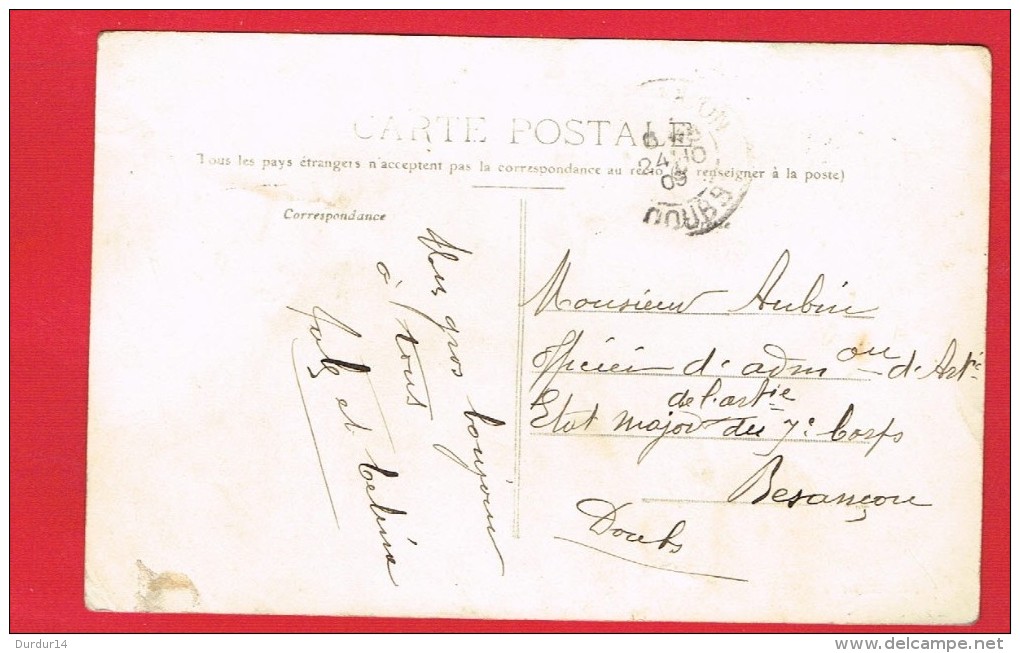 CARTE POSTALE
Tous les pays étrangers n'acceptent pas la correspondance au recto (se renseigner à la poste)
Correspondance
gros bonjour
à tous
et
24 10
09
DOUBS
Monsieur Aubin
officier d'adm on d'Artie
de l'artie
Etat major du 7e Corps
Besançon
Doubs
Durdur14
www.delcampe.net